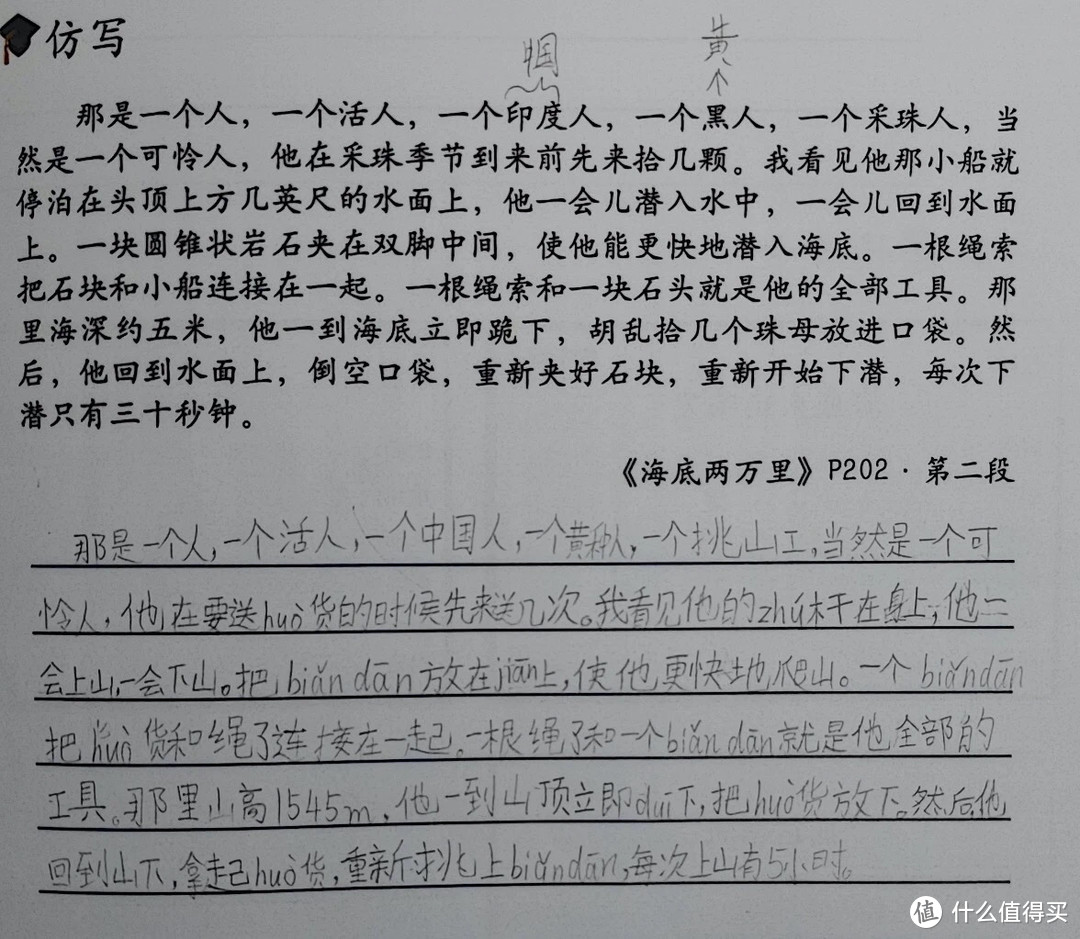 仿写
中国 黄
那是一个人，一个活人，一个印度人，一个黑人，一个采珠人，当
然是一个可怜人，他在采珠季节到来前先来拾几颗。我看见他那小船就
停泊在头顶上方几英尺的水面上，他一会儿潜入水中，一会儿回到水面
上。一块圆锥状岩石夹在双脚中间，使他能更快地潜入海底。一根绳索
把石块和小船连接在一起。一根绳索和一块石头就是他的全部工具。那
里海深约五米，他一到海底立即跪下，胡乱拾几个珠母放进口袋。然
后，他回到水面上，倒空口袋，重新夹好石块，重新开始下潜，每次下
潜只有三十秒钟。
《海底两万里》P202·第二段
那是一个人，一个活人，一个中国人，一个黄种人，一个挑山工，当然是一个可
怜人，他在要送huò货的时候先来送几次。我看见他的zhú杆在身上，他一
会上山，一会下山。把biǎn dān放在jiān上，使他更快地爬山。一个biǎndān
把huò货和绳子连接在一起。一根绳子和一个biǎn dān就是他全部的
工具。那里山高1545m，他一到山顶立即duī下，把huò货放下。然后，他
回到山下，拿走己huò货，重新挑上biǎndān，每次上山有5小时。
值 什么值得买